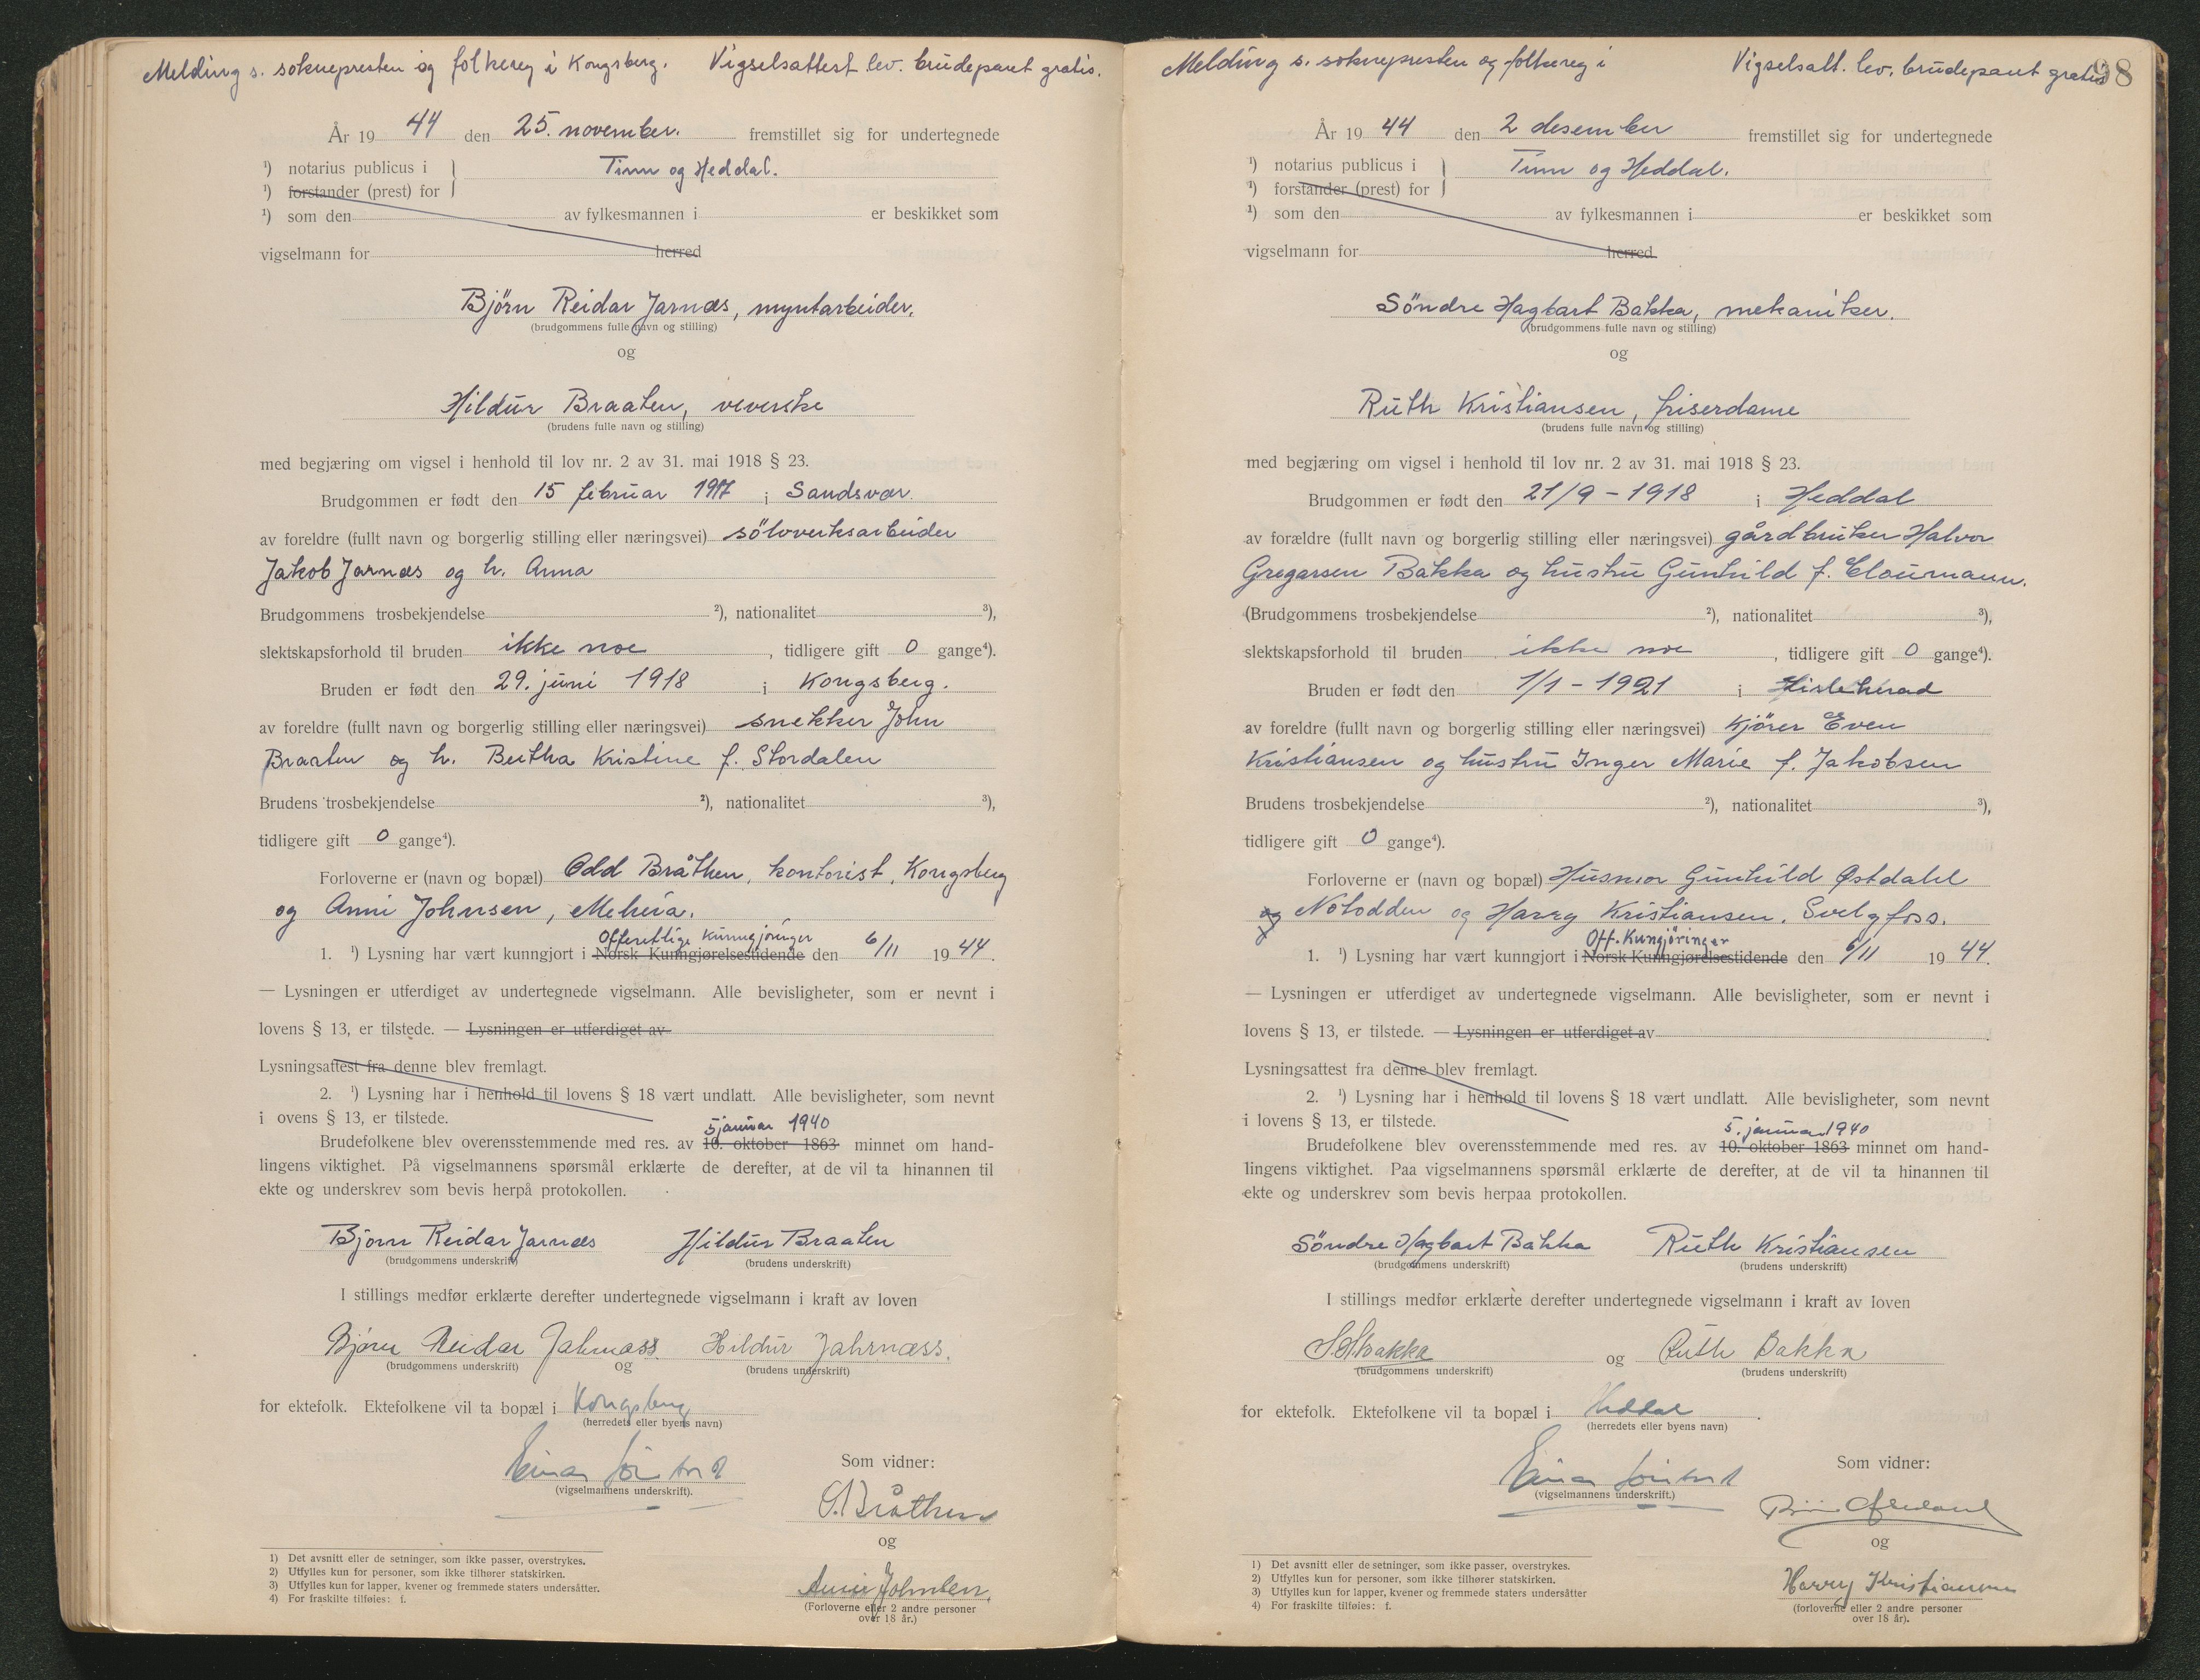 Melding s. soknepresten og folkereg i Kongsberg. Vigselsattest lev. brudeparet gratis.
År 19 44 den 25. november. fremstillet sig for undertegnede
¹) notarius publicus i } Tinn og Heddal.
¹) forstander (prest) for
¹) som den av fylkesmannen i er beskikket som
vigselmann for herred
Björn Reidar Jarnæs, myntarbeider.
(brudgommens fulle navn og stilling)
og
Hildur Braaten, veverske
(brudens fulle navn og stilling)
med begjæring om vigsel i henhold til lov nr. 2 av 31. mai 1918 § 23.
Brudgommen er født den 15 februar 1917 i Sandsvær.
av foreldre (fullt navn og borgerlig stilling eller næringsvei) sölvverksarbeider
Jakob Jarnæs og h. Anna
Brudgommens trosbekjendelse ²), nationalitet ³),
slektskapsforhold til bruden ikke noe, tidligere gift 0 gange⁴).
Bruden er født den 29. juni 1918 i Kongsberg.
av foreldre (fullt navn og borgerlig stilling eller næringsvei) snekker John
Braaten og h. Bertha Kristine f. Stordalen
Brudens trosbekjendelse ²), nationalitet ³),
tidligere gift 0 gange⁴).
Forloverne er (navn og bopæl) Odd Bråthen, kontorist, Kongsberg
og Anni Johnsen, Meheia.
Offentlige Kunngjöringer
1. ¹) Lysning har vært kunngjort i Norsk Kunngjørelsestidende den 6/11 19 44.
— Lysningen er utferdiget av undertegnede vigselmann. Alle bevisligheter, som er nevnt i
lovens § 13, er tilstede. — Lysningen er utferdiget av
Lysningsattest fra denne blev fremlagt.
2. ¹) Lysning har i henhold til lovens § 18 vært undlatt. Alle bevisligheter, som nevnt
i ovens § 13, er tilstede.
5 januar 1940
Brudefolkene blev overensstemmende med res. av 10. oktober 1863 minnet om hand-
lingens viktighet. På vigselmannens spørsmål erklærte de derefter, at de vil ta hinannen til
ekte og underskrev som bevis herpå protokollen.
Bjorn Reidar Jarnæs Hildur Braaten
(brudgommens underskrift) (brudens underskrift)
I stillings medfør erklærte derefter undertegnede vigselmann i kraft av loven
Bjørn Reidar Jahrnæss. Hildur Jahrnæss.
(brudgommens underskrift) og (brudens underskrift)
for ektefolk. Ektefolkene vil ta bopæl i Kongsberg
(herredets eller byens navn)
Einar
(vigselmannens underskrift).
Som vidner:
O. Bråthen
og
Anni Johnsen.
(Forloverne eller 2 andre personer
over 18 år.)
1) Det avsnitt eller de setninger, som ikke passer, overstrykes.
2) Utfylles kun for personer, som ikke tilhører statskirken.
3) Utfylles kun for lapper, kvener og fremmede staters undersåtter.
4) For fraskilte tilføies: f.
Melding s. soknepresten og folkereg i Vigselsatt. lev. brudeparet gratis
98
År 19 44 den 2 desember fremstillet sig for undertegnede
¹) notarius publicus i } Tinn og Heddal.
¹) forstander (prest) for
¹) som den av fylkesmannen i er beskikket som
vigselmann for herred
Söndre Hagbart Bakka, mekaniker.
(brudgommens fulle navn og stilling)
og
Ruth Kristiansen, friserdame
(brudens fulle navn og stilling)
med begjæring om vigsel i henhold til lov nr. 2 av 31. mai 1918 § 23.
Brudgommen er født den 21/9 - 1918 i Heddal
av forældre (fullt navn og borgerlig stilling eller næringsvei) gårdbruker Halvor
Gregarsen Bakka og hustru Gunhild f. Cloumann.
(Brudgommens trosbekjendelse ²), nationalitet ³),
slektskapsforhold til bruden ikke noe, tidligere gift 0 gange⁴).
Bruden er født den 1/1 - 1921 i Hisleherad
av foreldre (fullt navn og borgerlig stilling eller næringsvei) kjörer Even
Kristiansen og hustru Inger Marie f. Jakobsen
Brudens trosbekjendelse ²), nationalitet ³),
tidligere gift 0 gange⁴).
Forloverne er (navn og bopæl) Husmor Gunhild Østdahl
og Notodden og Harry Kristiansen. Svelgfoss.
Off. Kungjöringer
1. ¹) Lysning har vært kunngjort i Norsk Kunngjørelsestidende den 6/11 19 44.
— Lysningen er utferdiget av undertegnede vigselmann. Alle bevisligheter, som er nevnt i
lovens § 13, er tilstede. — Lysningen er utferdiget av
Lysningsattest fra denne blev fremlagt.
2. ¹) Lysning har i henhold til lovens § 18 vært undlatt. Alle bevisligheter, som nevnt
i lovens § 13, er tilstede.
5. januar 1940
Brudefolkene blev overensstemmende med res. av 10. oktober 1863 minnet om hand-
lingens viktighet. Paa vigselmannens spørsmål erklærte de derefter, at de vil ta hinannen til
ekte og underskrev som bevis herpaa protokollen.
Söndre Hagbart Bakka Ruth Kristiansen
(brudgommens underskrift) (brudens underskrift)
I stillings medfør erklærte derefter undertegnede vigselmann i kraft av loven
S. H. Bakka og Ruth Bakka
(brudgommens underskrift) (brudens underskrift)
for ektefolk. Ektefolkene vil ta bopæl i Heddal.
(herredets eller byens navn)
Einar
(vigselmannens underskrift.)
Som vidner:
og
Harry Kristiansen
(forloverne eller 2 andre personer
over 18 år).
1) Det avsnitt eller de setninger, som ikke passer, overstrykes.
2) Utfylles kun for personer, som ikke tilhører statskirken.
3) Utfylles kun for lapper, kvener og fremmede staters undersåtter
4) For fraskilte tilføies: f.